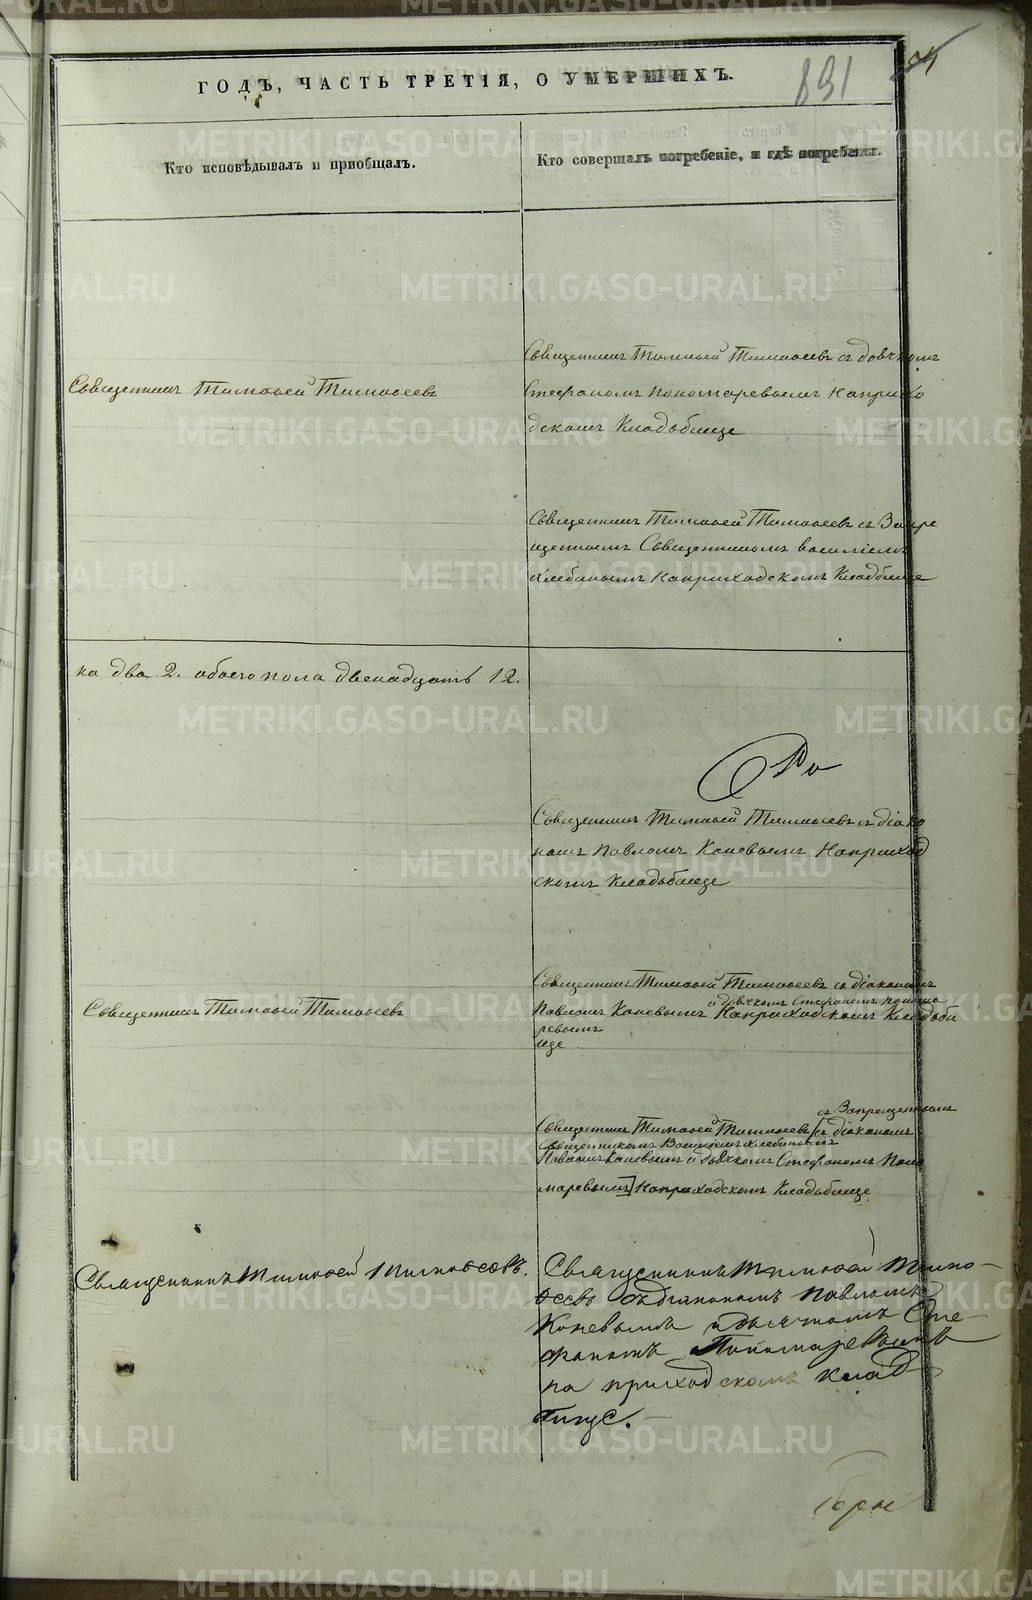 ГОДЪ, ЧАСТЬ ТРЕТІЯ, О УМЕРШИХЪ.
891
Кто исповѣдывалъ и пріобщалъ.
Кто совершалъ погребеніе, и гдѣ погребены.
Священникъ Тимоѳей Тимоѳеевъ
Священникъ Тимоѳей Тимоѳеевъ съ дьячкомъ
Стефаномъ Пономаревымъ на прихо
дскомъ кладьбище
Священникъ Тимоѳей Тимоѳеевъ съ Запре
щеннымъ Священникомъ василіемъ
Хлебинымъ на приходскомъ кладбище
ка два 2. обоего пола двенадцать 12.
Священникъ Тимоѳей Тимоѳеевъ съ діако
номъ Павломъ Коневымъ на приход
скомъ кладьбище
Священникъ Тимоѳей Тимоѳеевъ
Священникъ Тимоѳей Тимоѳеевъ съ діакономъ
и дьячкомъ Стефаномъ понома
Павломъ Коневымъ на приходскомъ кладьби
ревымъ
ще
съ Запрещеннымъ
Священникъ Тимоѳей Тимоѳеевъ [съ діакономъ
Священникомъ Василіемъ Хлебинымъ
Павломъ Коневымъ и дьячкомъ Стефаномъ Поно
маревымъ] на приходскомъ кладьбище
Священникъ Тимоѳей Тимоѳеевъ.
Священникъ Тимоѳей Тимо-
ѳеевъ съ діакономъ Павломъ
Коневымъ и дьячкомъ Сте-
фаномъ Пономаревымъ
на приходскомъ клад-
бище.
METRIKI.GASO-URAL.RU